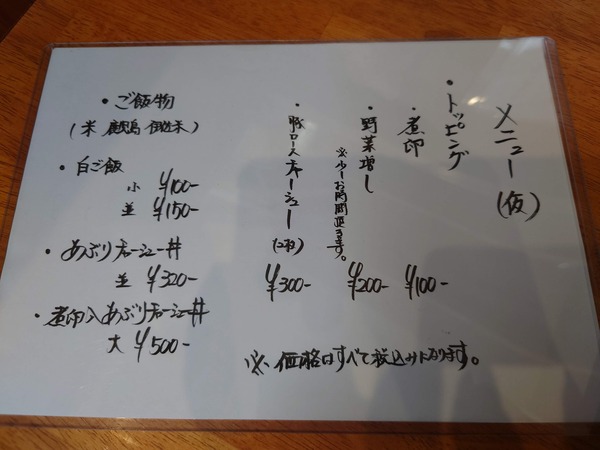 メニュー(仮)
・トッピング
・煮卵 ¥100-
・野菜増し ¥200-
※少しお時間頂きます。
・豚ロースチャーシュー(2枚) ¥300-
・ご飯物
(米 鹿児島 伊佐米)
・白ご飯
小 ¥100-
並 ¥150-
・あぶりチャーシュー丼
並 ¥320-
・煮卵入あぶりチャーシュー丼
大 ¥500-
※価格はすべて税込みになります。